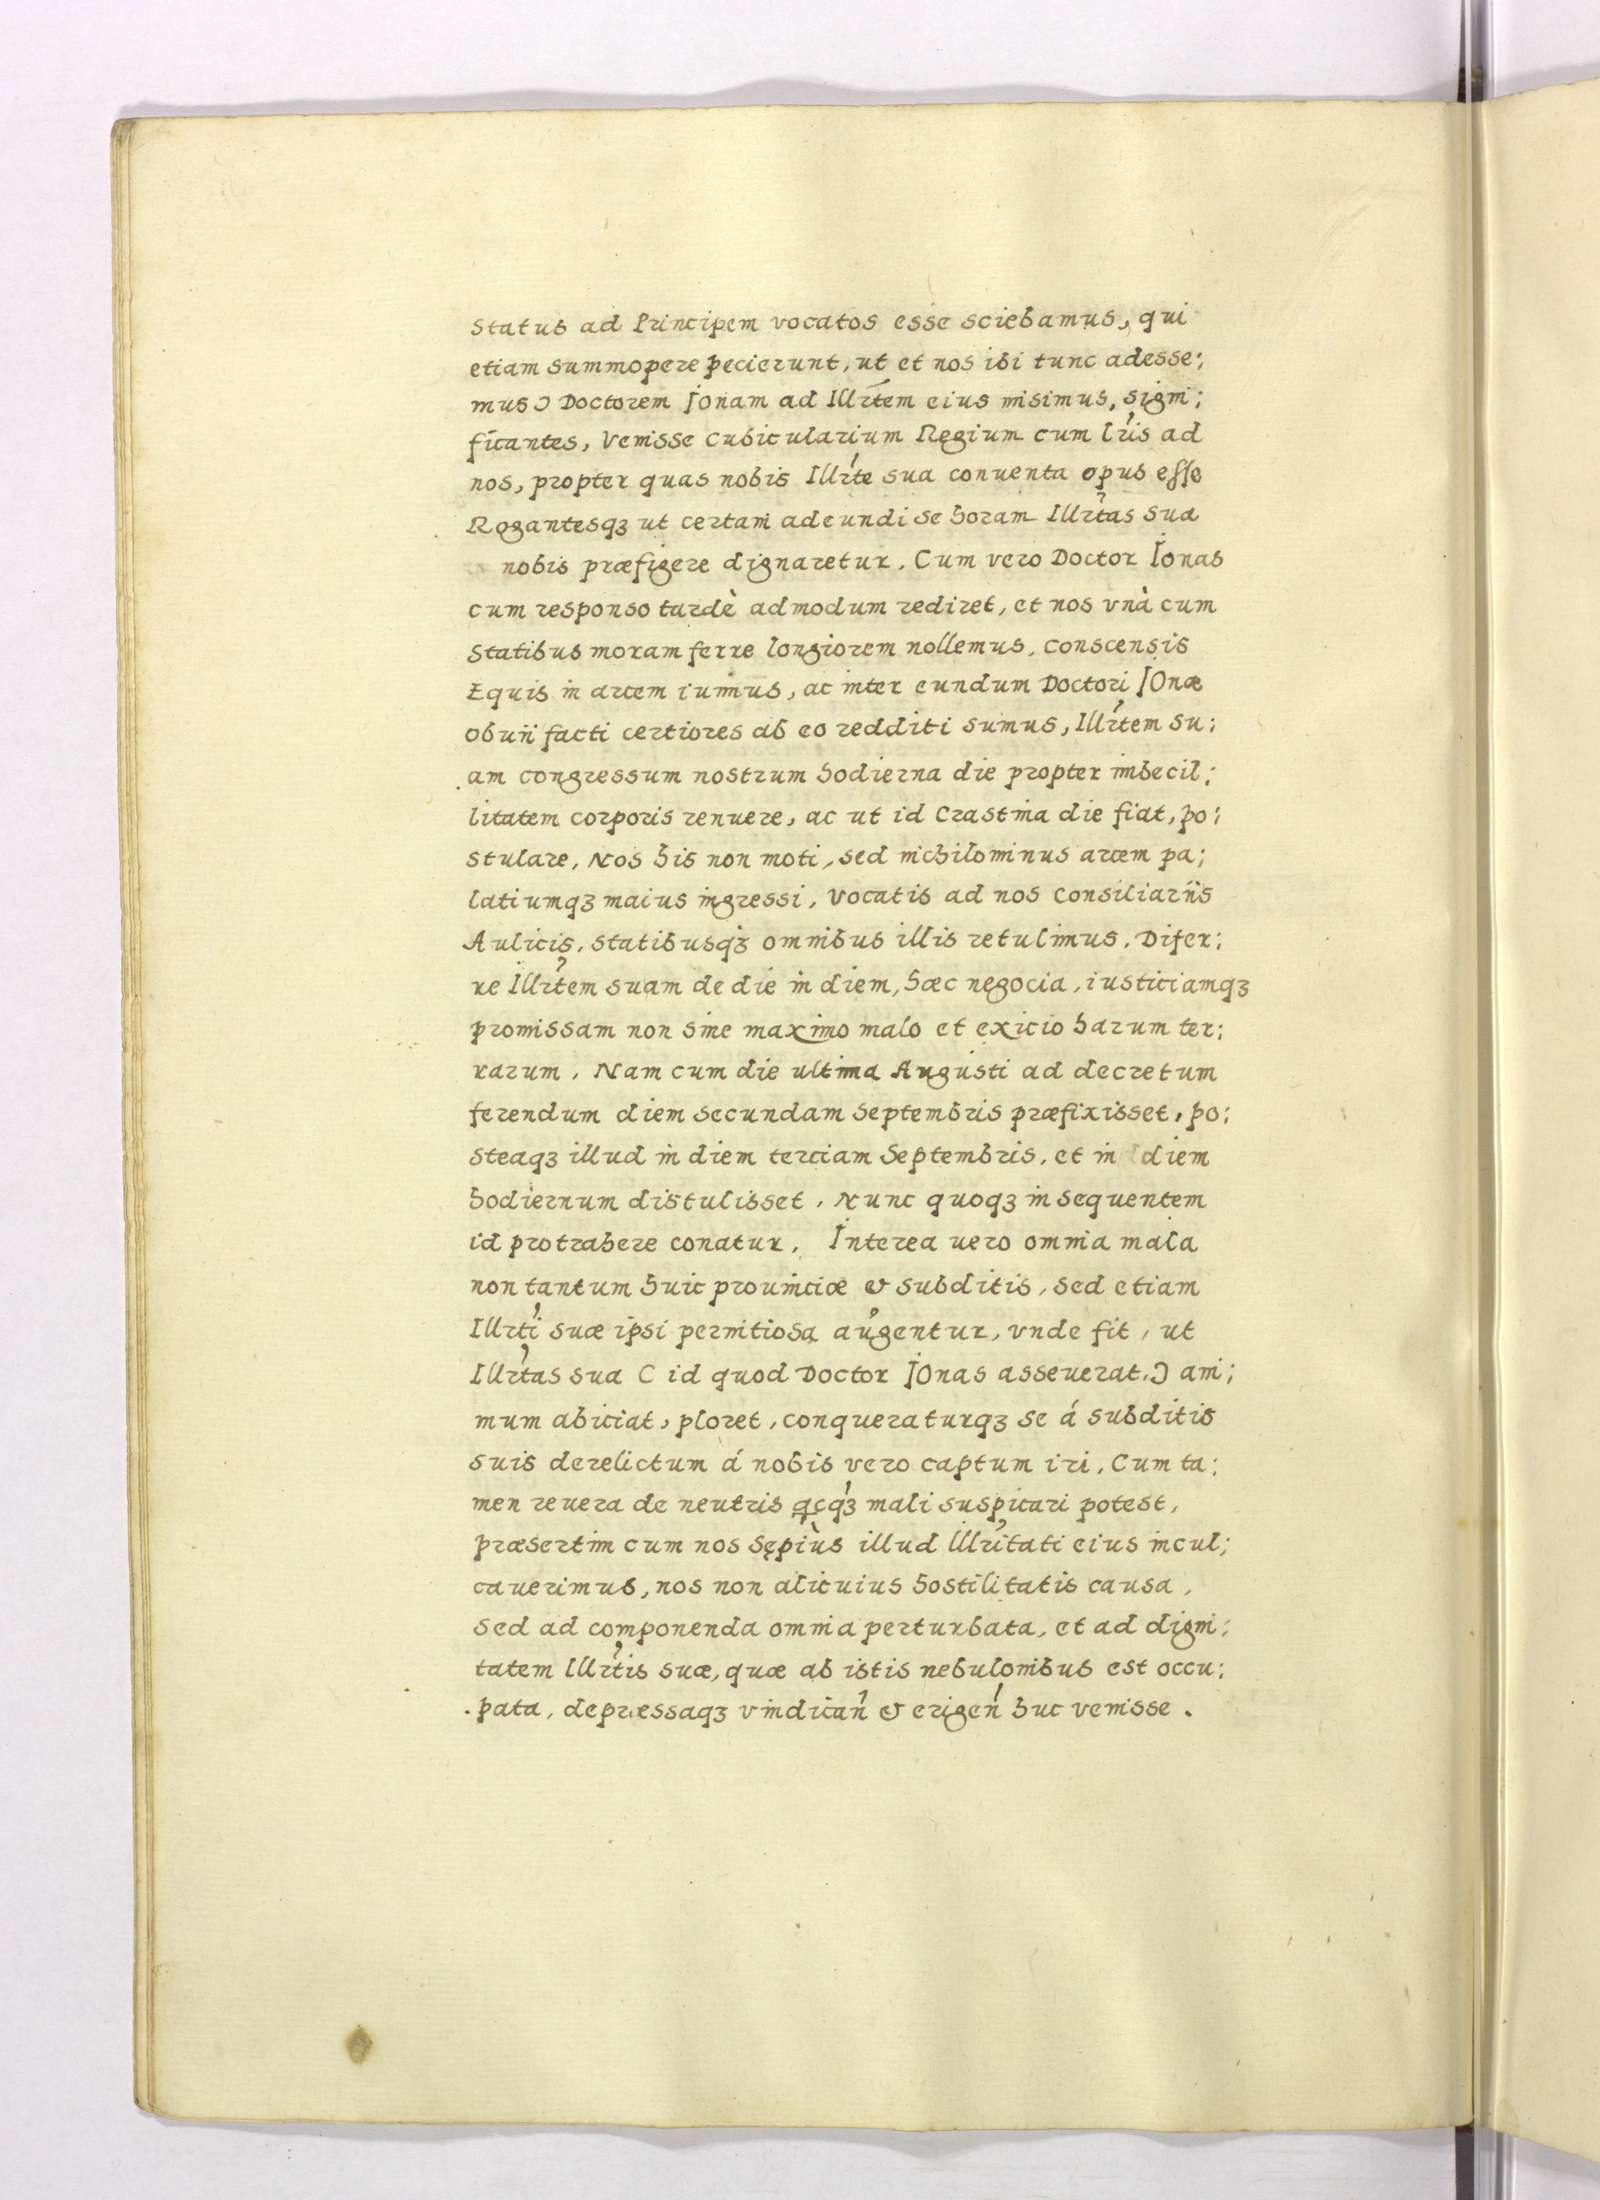 Status ad Principem vocatos esse sciebamus, qui
etiam summopere pecierunt, ut et nos ibi tunc adesse:
mus) Doctorem Jonam ad Illrtem eius misimus, signi:
ficantes, Venisse Cubicularium Regium cum lris ad
nos, propter quas nobis Illrte sua conuenta opus esse
Rogantesqȝ ut certam adeundi se horam Illrtas sua
nobis præfigere dignaretur. Cum vero Doctor Jonas
cum responso tardè admodum rediret, et nos vnà cum
Statibus moram ferre longiorem nollemus, conscensis
Equis in arcem iuimus, ac inter eundum Doctori Jonæ
obuii facti certiores ab eo redditi sumus, Illrtem su:
am congressum nostrum hodierna die propter imbecil:
litatem corporis renuere, ac ut id Crastina die fiat, po:
stulare, Nos his non moti, sed nichilominus arcem pa:
latiumqȝ maius ingressi, Vocatis ad nos Consiliariis
Aulicis, statibusqȝ omnibus illis retulimus. Difer:
re Illrtem suam de die in diem, hæc negocia, iusticiamqȝ
promissam non sine maximo malo et exicio harum ter:
rarum. Nam cum die ultima Augusti ad decretum
ferendum diem secundam Septembris præfixisset, po:
steaqȝ illud in diem terciam Septembris, et in diem
hodiernum distulisset. Nunc quoqȝ in sequentem
id protrahere conatur. Interea uero omnia mala
non tantum huic prouinciæ & subditis, sed etiam
Illrti suæ ipsi pernitiosa augentur, vnde fit, ut
Illrtas sua ( id quod Doctor Jonas asseuerat.) ani:
mum abiciat, ploret, conqueraturqȝ se á subditis
suis derelictum á nobis vero captum iri, Cum ta:
men reuera de neutris qcqȝ mali suspicari potest,
præsertim cum nos sępiùs illud Illritati eius incul:
cauerimus, nos non alicuius hostilitatis causa,
Sed ad componenda omnia perturbata, et ad digni:
tatem Illrtis suæ, quæ ab istis nebulonibus est occu:
pata, depressaqȝ vindican & erigen huc venisse.